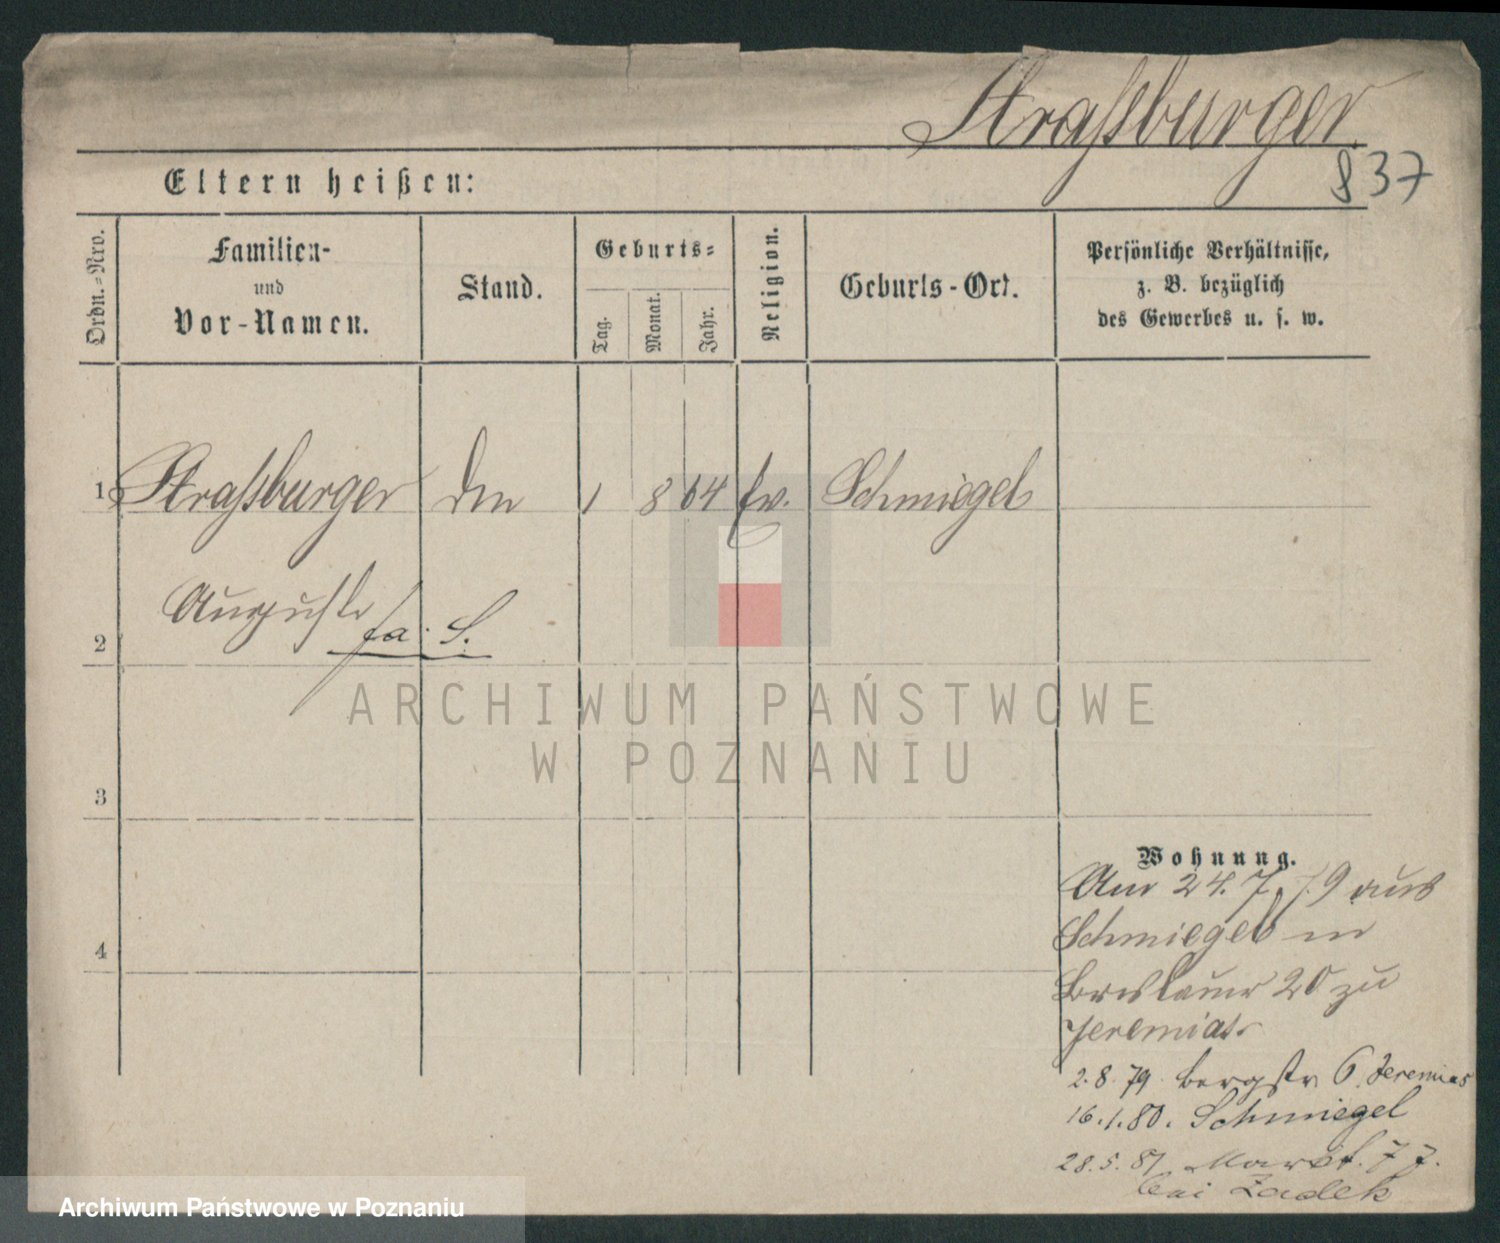 Straßburger
837
Eltern heißen:
Ordn.=Nro.
Familien-
und
Vor-Namen.
Stand.
Geburts=
Tag.
Monat.
Jahr.
Religion.
Geburts-Ort.
Persönliche Verhältnisse,
z. B. bezüglich
des Gewerbes u. s. w.
1 Straßburger 1 8 64 Schmiegel
Auguste
2
fa. S.
ARCHIWUM PAŃSTWOWE
W POZNANIU
3
Wohnung.
4
24. 7. 79 aus
Schmiegel in
Breslauer 20 zu
Jeremias
2. 8. 79. Bergstr 6. Jeremias
16. 1. 80. Schmiegel
28. 5. 81 Markt. 77.
bei Zadek
Archiwum Państwowe w Poznaniu